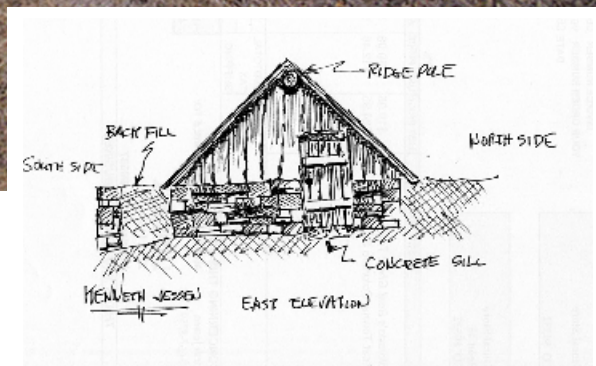 RIDGE POLE
BACK FILL
NORTH SIDE
SOUTH SIDE
CONCRETE SILL
KENNETH JESSEN
EAST ELEVATION